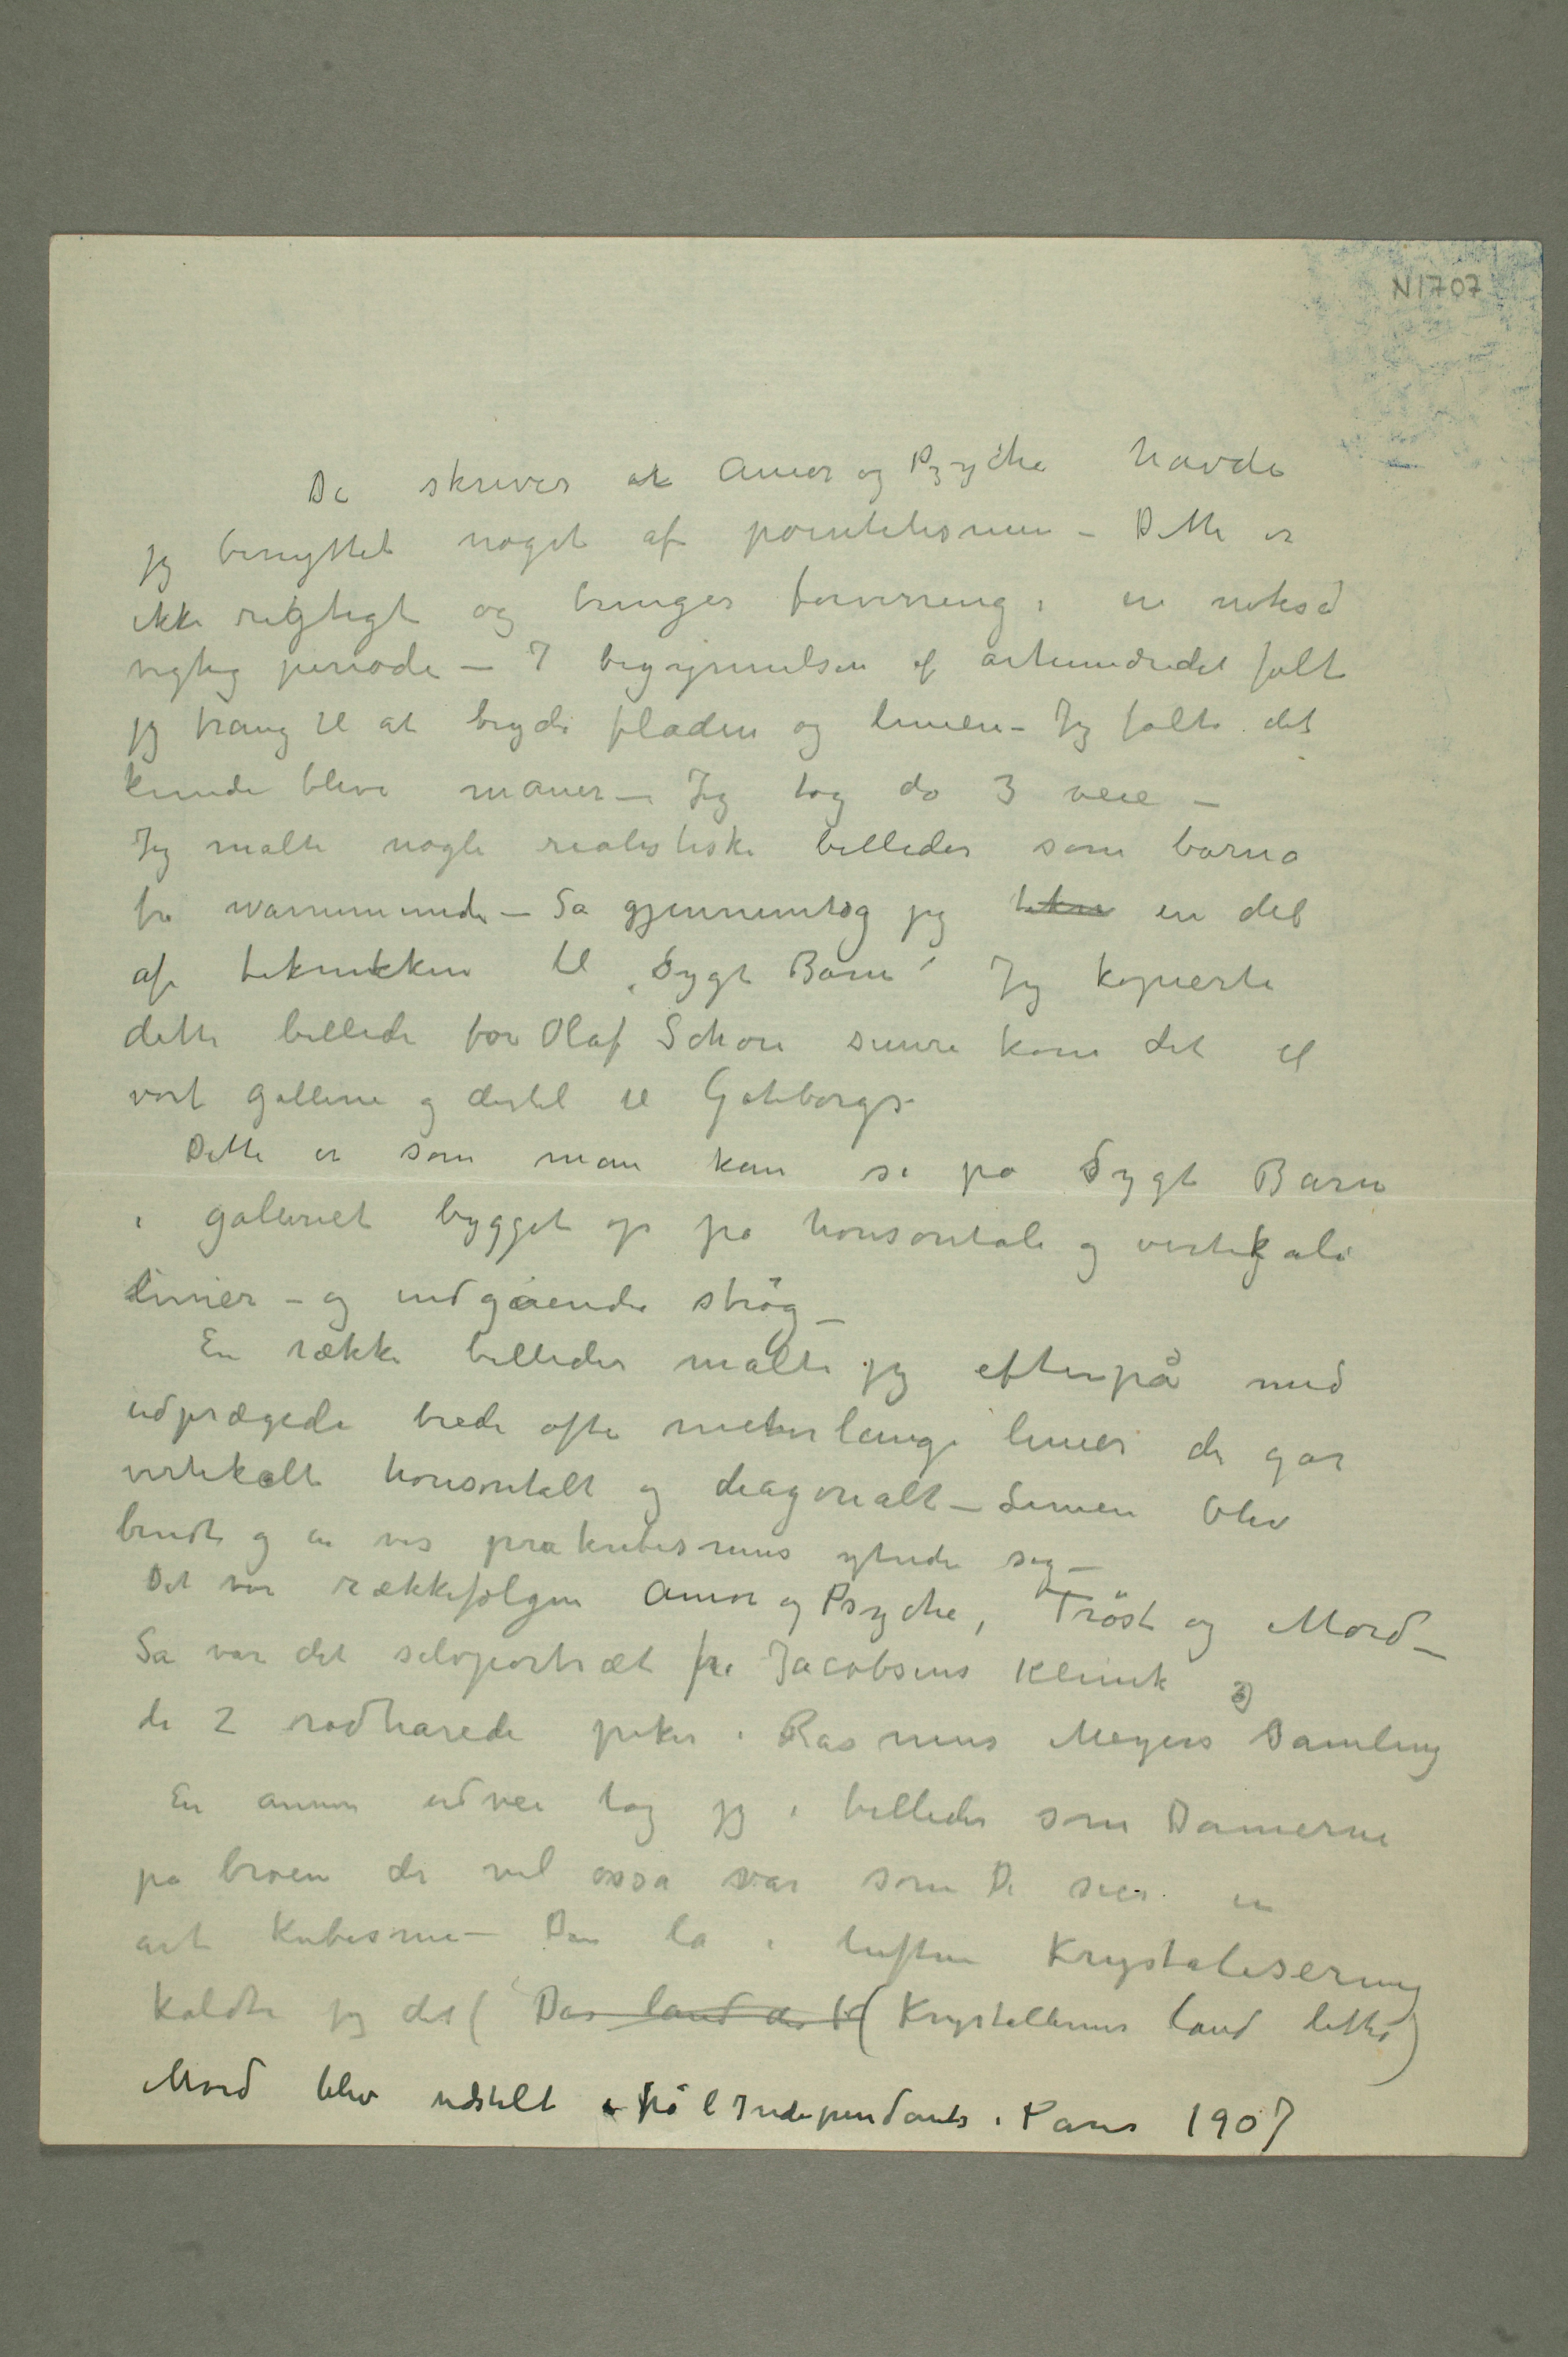 N1707
De skriver at Amor og Psyche havde
jeg benyttet noget af pointilismen – Dette er
ikke rigtigt og bringer forvirring i en nokså
vigtig periode – I begynnelsen af århundredet følte
jeg trang til at bryde fladen og linien – Jeg følte det
kunde blive maner – Jeg tog da 3 veie –
Jeg malte nogle realistiske billeder som barna
fra Warnemünde – Så gjennemtog jeg tekni en del
af teknikken til „Sygt Barn“ Jeg kopierte
dette billede for Olaf Schou senere kom det til
vort galleri og dertil til Gøteborgs
Dette er som man kan se på Sygt Barn
i galleriet bygget op på horisontale og vertikale
linier – og indgående strøg –
En række billeder malte jeg efterpå med
udprægede brede ofte meterlange linier der går
vertikalt horisontalt og diagonalt – Linien blev
brudt og en vis prækubismus ytrede sig –
Det var rækkefølgen Amor og Psyche, Trøst og Mord –
Så var det selvportræt fra Jacobsens Klinik og
de 2 rødhårede piker i Rasmus Meyers Samling
En annen udvei tog jeg i billeder som Damerne
på broen der vel osså var som De sier en
art Kubisme – Den lå i luften Krystalisering
kaldte jeg det ( Das land der k (Krystallernes land hette)
Mord blev udstillt på l Independants i Paris 1907